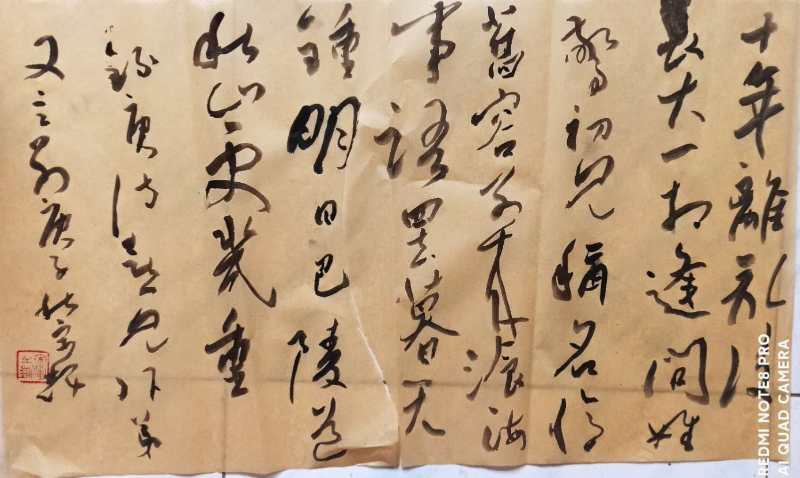 十年離亂後
長大一相逢問姓
驚初見稱名憶
舊容滄海
事語罷暮天
鍾明日巴陵道
秋山更幾重
錄唐诗喜見外弟
又言别庚子秋
REDMI NOTE8 PRO
AI QUAD CAMERA